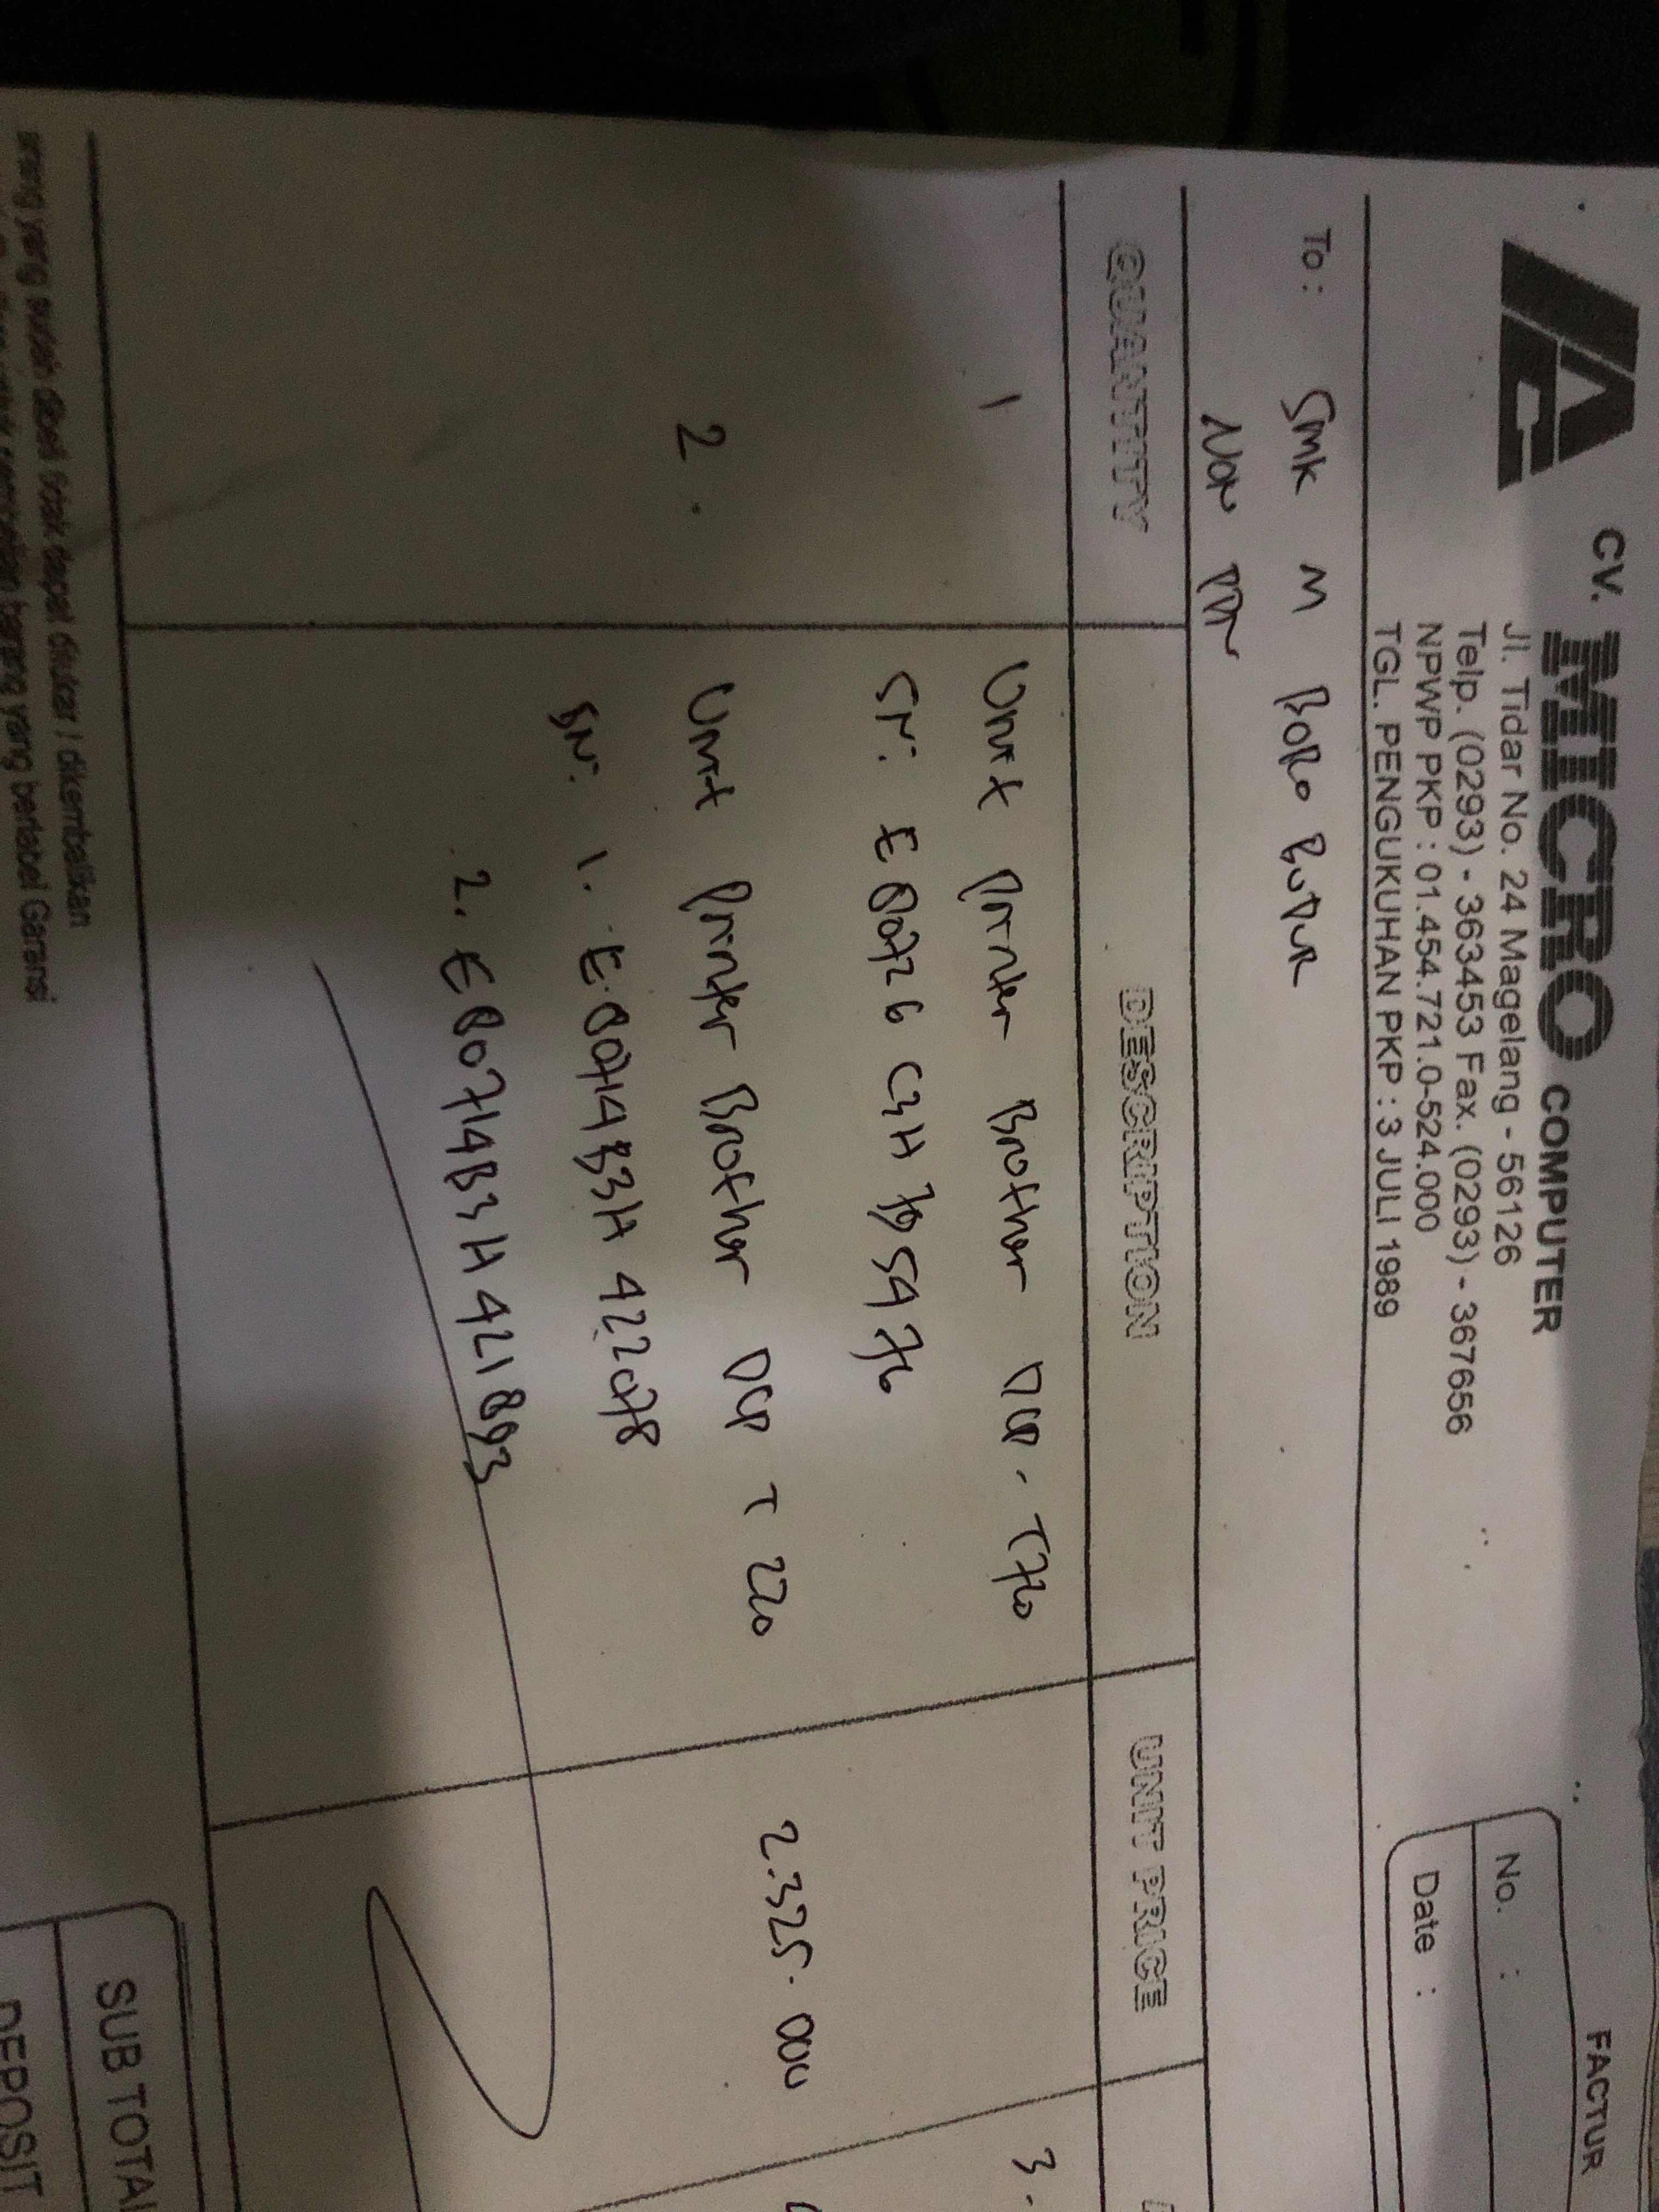 CV. MICRO COMPUTER
Jl. Tidar No. 24 Magelang - 56126
Telp. (0293) - 363453 Fax. (0293) - 367656
NPWP PKP : 01.454.721.0-524.000
TGL. PENGUKUHAN PKP : 3 JULI 1989
FACTUR
No. :
Date :
To : SMK M BOROBUDUR
NON PPN
QUANTITY DESCRIPTION UNIT PRICE
1 Unit Printer Brother DCP - T720 3.
SN:
2. Unit Printer Brother DCP T 220 2.325.000
SN: 1. E80714B3H422078
2. E80714B3H421893
barang yang sudah dibeli tidak dapat ditukar / dikembalikan
barang yang berlabel Garansi
SUB TOTAL
DEPOSIT